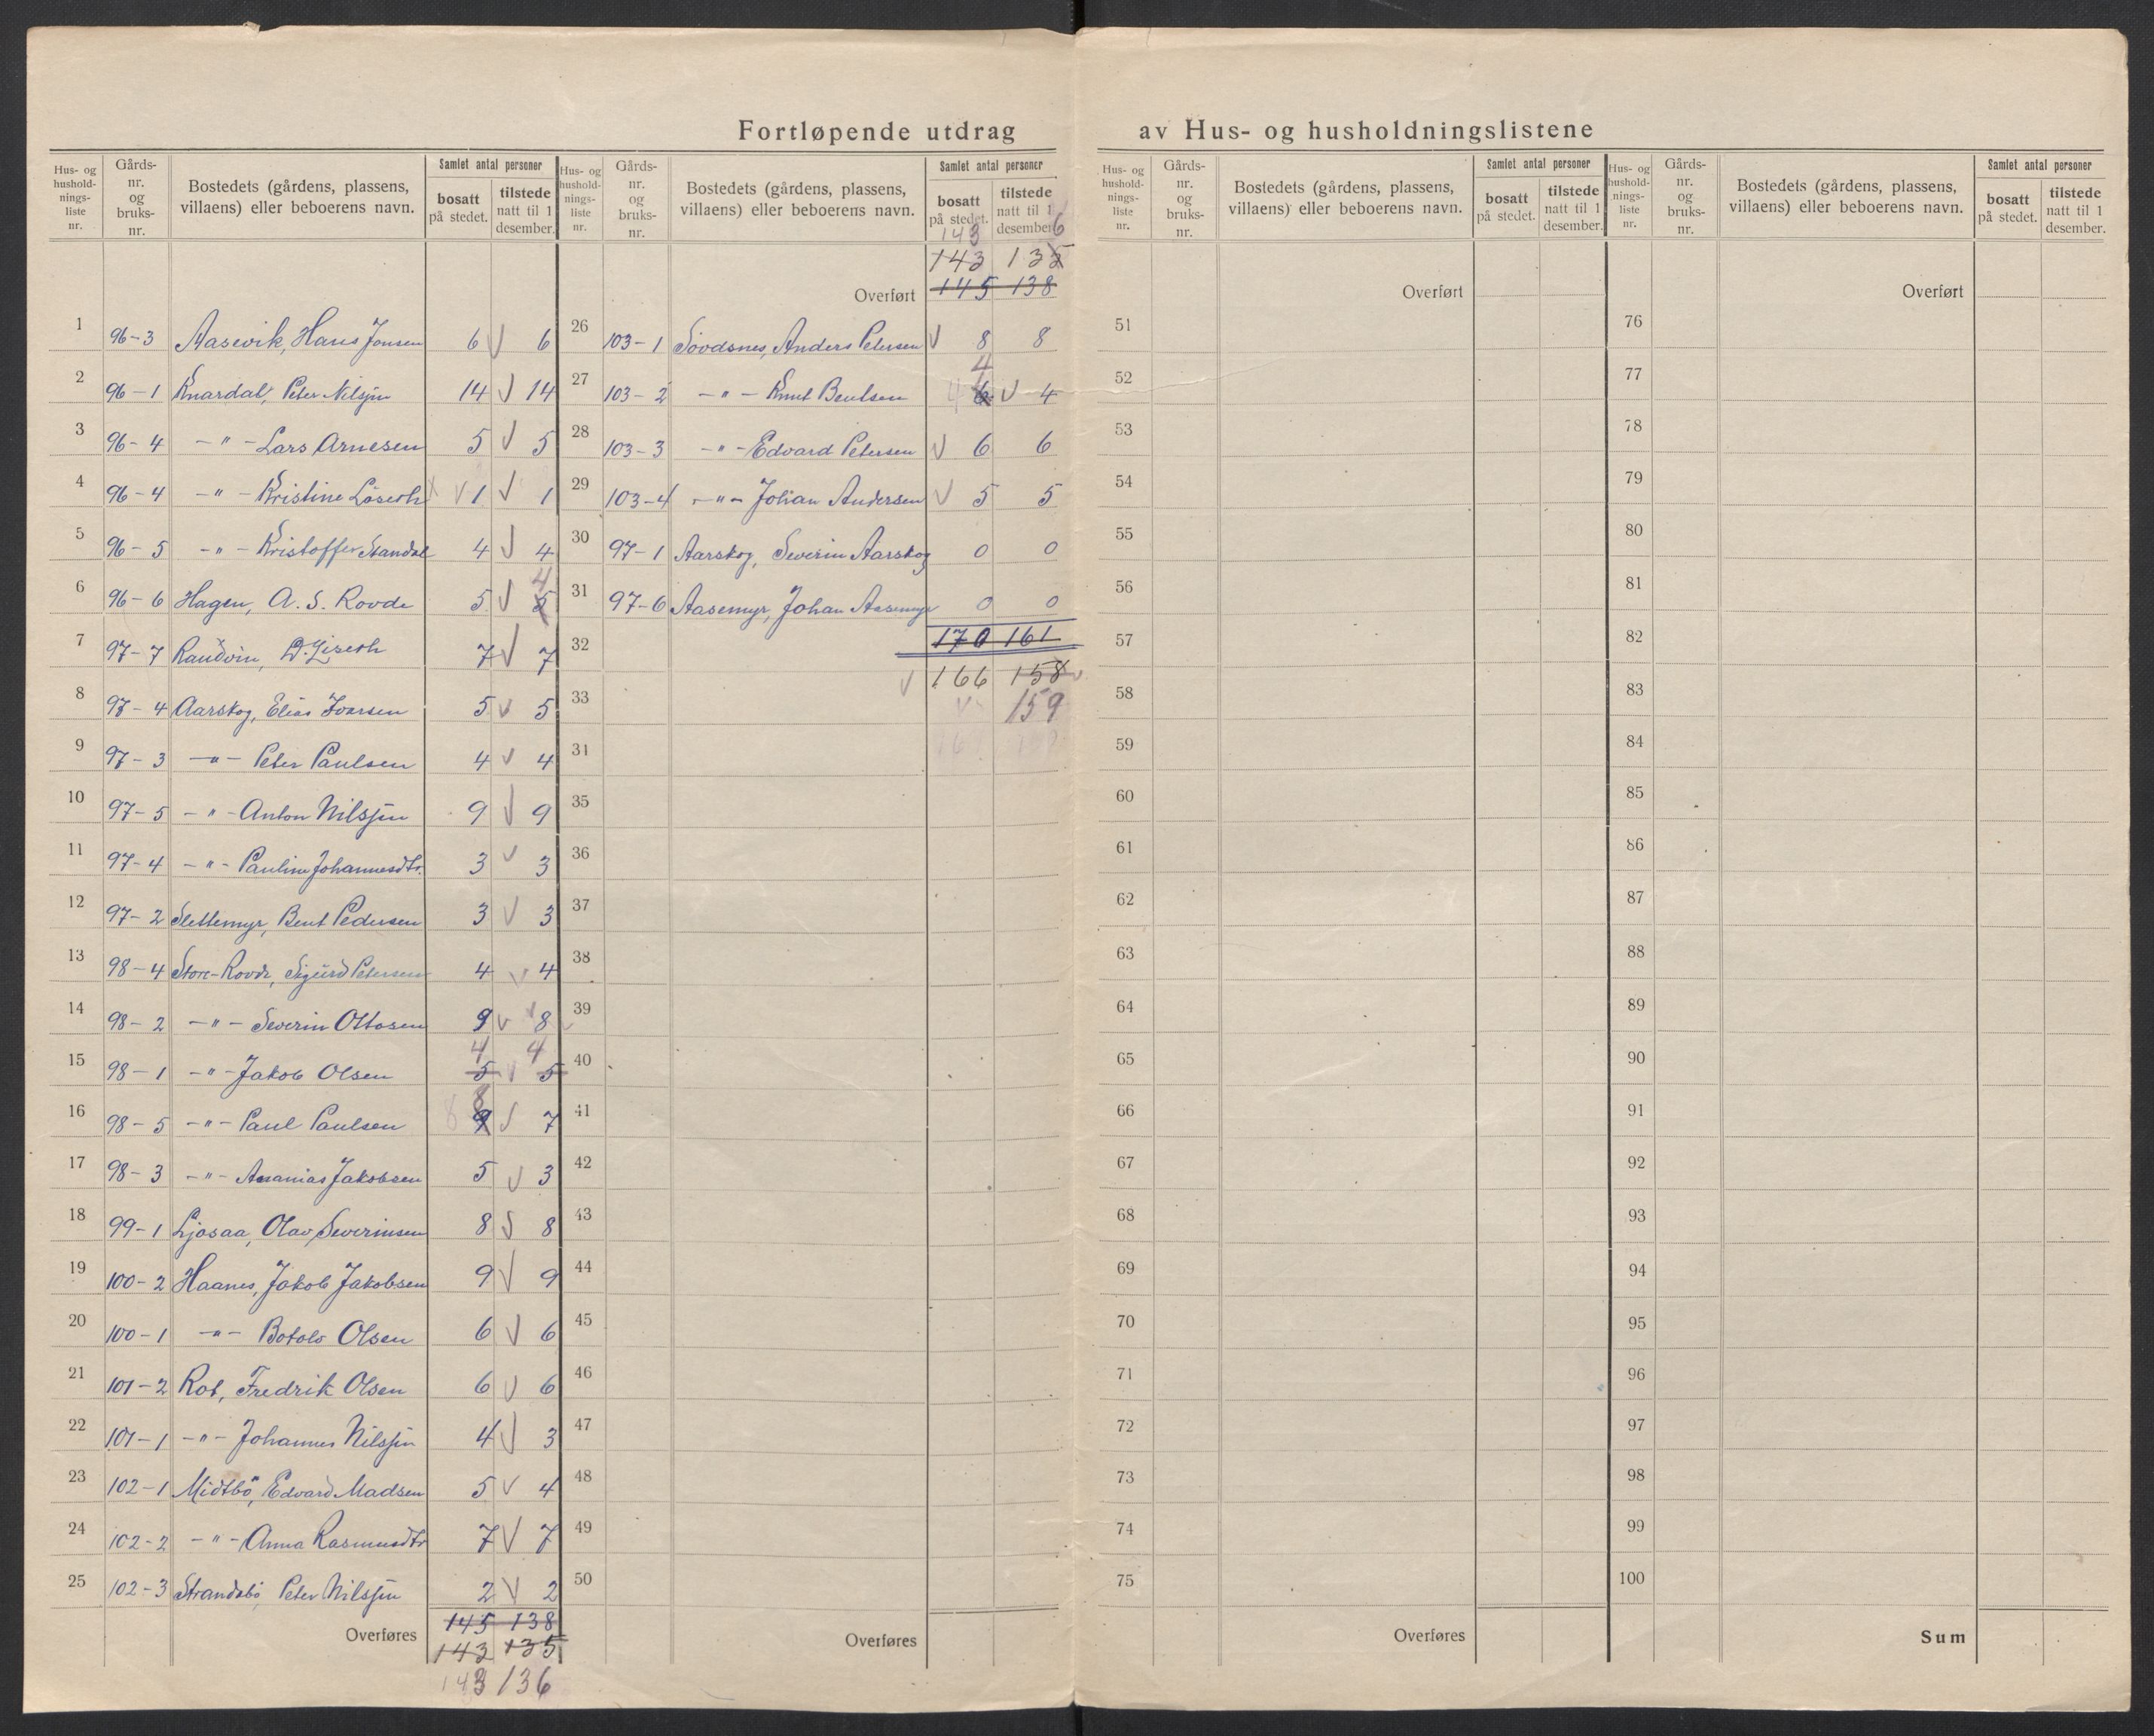 Fortløpende utdrag av Hus- og husholdningslistene
Hus- og hushold-nings-liste nr. | Gårds-nr. og bruks-nr. | Bostedets (gårdens, plassens, villaens) eller beboerens navn. | Samlet antal personer | bosatt på stedet. | tilstede natt til 1 desember.
1 96-3 Aasevik, Hans Jonsen 6 V 6
2 96-1 Knardal, Peter Nilsjin 14 V 14
3 96-4 -"- Lars Arnesen 5 V 5
4 96-4 -"- Kristine Löseth V 1 V 1
5 96-5 -"- Kristoffer Standal 4 V 4
6 96-6 Hagen, A. S. Rovde 5 V 5 4
7 97-7 Raudvin, D. Giseth 7 V 7
8 97-4 Aarskog, Elias Ivarsen 5 V 5
9 97-3 -"- Peter Paulsen 4 V 4
10 97-5 -"- Anton Nilsjin 9 V 9
11 97-4 -"- Pauline Johannesdtr. 3 V 3
12 97-2 Slettemyr, Bent Pedersen 3 V 3
13 98-4 Store-Rovde, Sigurd Petersen 4 V 4
14 98-2 -"- Severin Ottosen 9 V 8
15 98-1 -"- Jakob Olsen 5 4 V 5 4
16 98-5 -"- Paul Paulsen 8 9 8 V 7
17 98-3 -"- Ananias Jakobsen 5 V 3
18 99-1 Ljosaa, Olav Severinsen 8 V 8
19 100-2 Haanes, Jakob Jakobsen 9 V 9
20 100-1 -"- Botolv Olsen 6 V 6
21 101-2 Rot, Fredrik Olsen 6 V 6
22 101-1 -"- Johannes Nilsjin 4 V 3
23 102-1 Midtbö, Edvard Madsen 5 V 4
24 102-2 -"- Anna Rasmusdtr 7 V 7
25 102-3 Strandabö, Peter Nilsjin 2 V 2
Overføres 145 138
143 135
143 136
Hus- og hushold-nings-liste nr. | Gårds-nr. og bruks-nr. | Bostedets (gårdens, plassens, villaens) eller beboerens navn. | Samlet antal personer | bosatt på stedet. | tilstede natt til 1 desember.
143 6
143 135
Overført 145 138
26 103-1 Sövdsnes, Anders Petersen V 8 8
27 103-2 -"- Knut Bentsen 4 6 4 V 4
28 103-3 -"- Edvard Petersen V 6 6
29 103-4 -"- Johan Andersen V 5 5
30 97-1 Aarskog, Severin Aarskog 0 0
31 97-6 Aasemyr, Johan Aasemyr 0 0
32 170 161
V 166 158 V
33 V 159
31
35
36
37
38
39
40
41
42
43
44
45
46
47
48
49
50
Overføres
Hus- og hushold-nings-liste nr. | Gårds-nr. og bruks-nr. | Bostedets (gårdens, plassens, villaens) eller beboerens navn. | Samlet antal personer | bosatt på stedet. | tilstede natt til 1 desember.
Overført
51
52
53
54
55
56
57
58
59
60
61
62
63
64
65
66
67
68
69
70
71
72
73
74
75
Overføres
Hus- og hushold-nings-liste nr. | Gårds-nr. og bruks-nr. | Bostedets (gårdens, plassens, villaens) eller beboerens navn. | Samlet antal personer | bosatt på stedet. | tilstede natt til 1 desember.
Overført
76
77
78
79
80
81
82
83
84
85
86
87
88
89
90
91
92
93
94
95
96
97
98
99
100
Sum